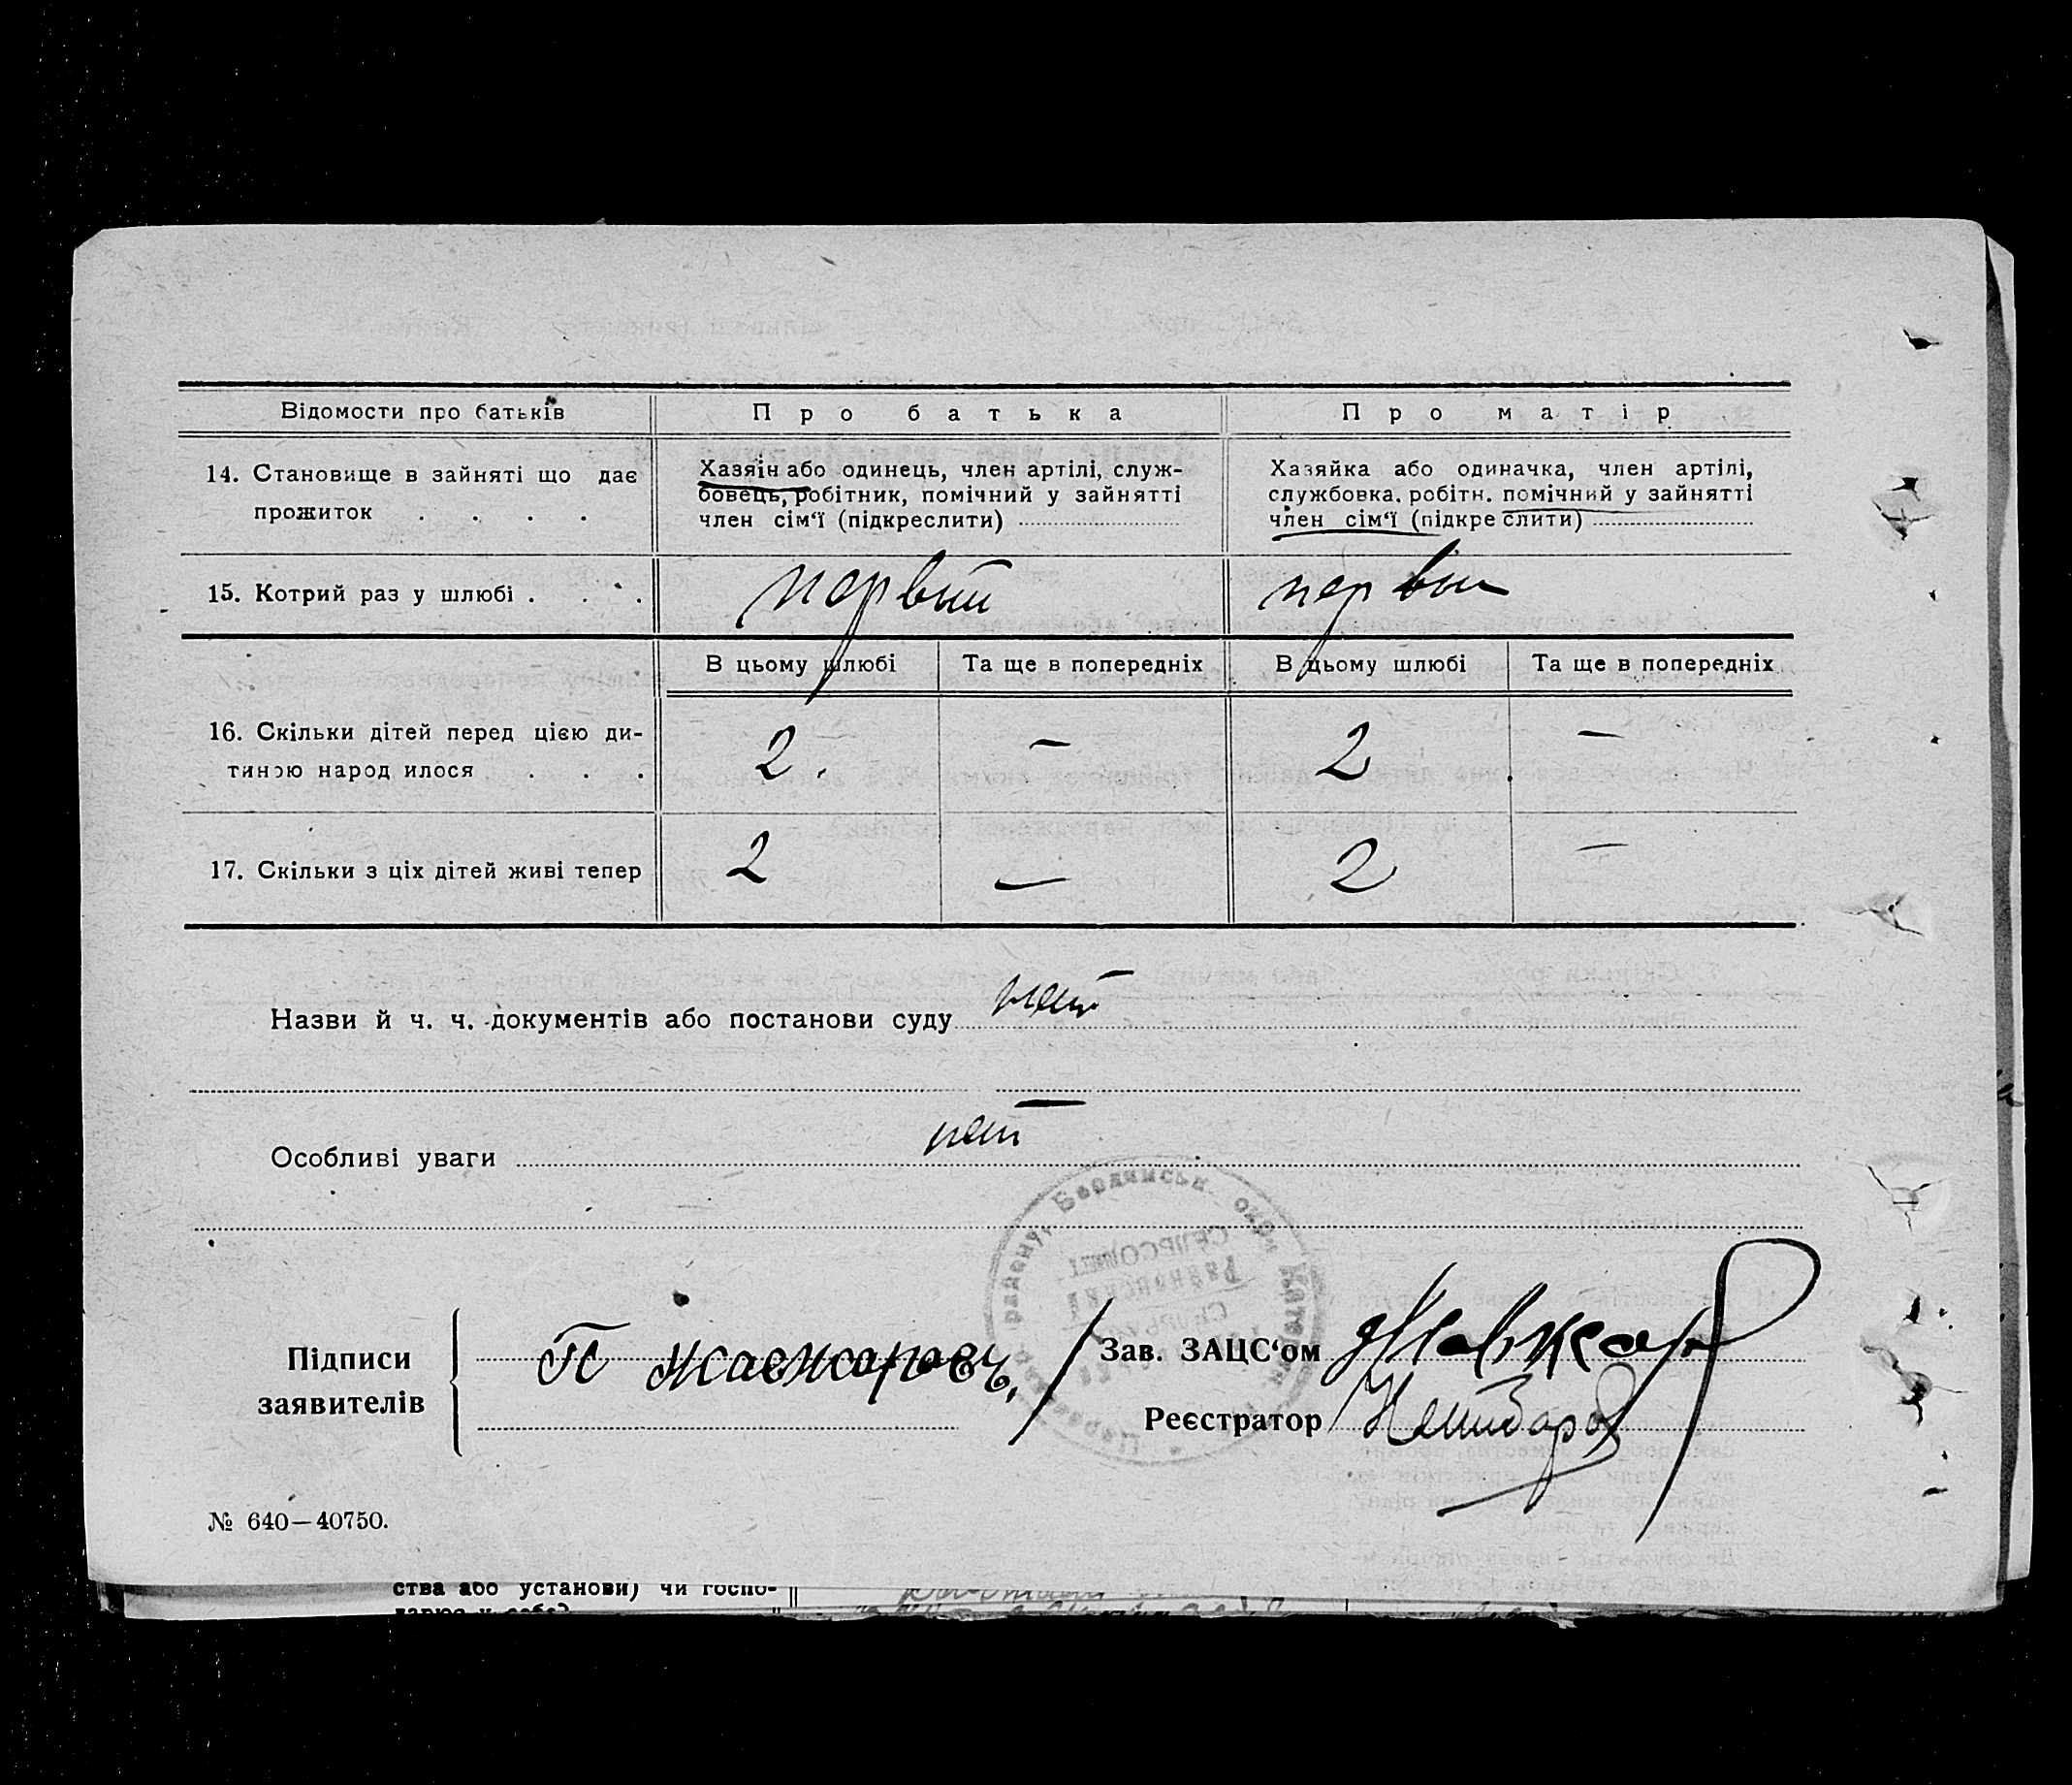 Відомости про батьків
Про батька
Про матір
14. Становище в зайняті що дає прожиток . . . .
Хазяїн або одинець, член артілі, служ-
бовець, робітник, помічний у зайнятті
член сім'ї (підкреслити)
Хазяйка або одиначка, член артілі,
службовка, робітн. помічний у зайнятті
член сім'ї (підкреслити)
15. Котрий раз у шлюбі . . .
первый
первый
В цьому шлюбі
Та ще в попередніх
В цьому шлюбі
Та ще в попередніх
16. Скільки дітей перед цією ди-
тиною народилося . . .
2.
—
2
—
17. Скільки з ціх дітей живі тепер
2
—
2
—
Назви й ч. ч. документів або постанови суду нет
Особливі уваги нет
району, Бердянськ. окр. Катерин
Підписи
заявителів
П
Зав. ЗАЦС'ом
Реєстратор
№ 640—40750.
ства або установи) чи госпо-